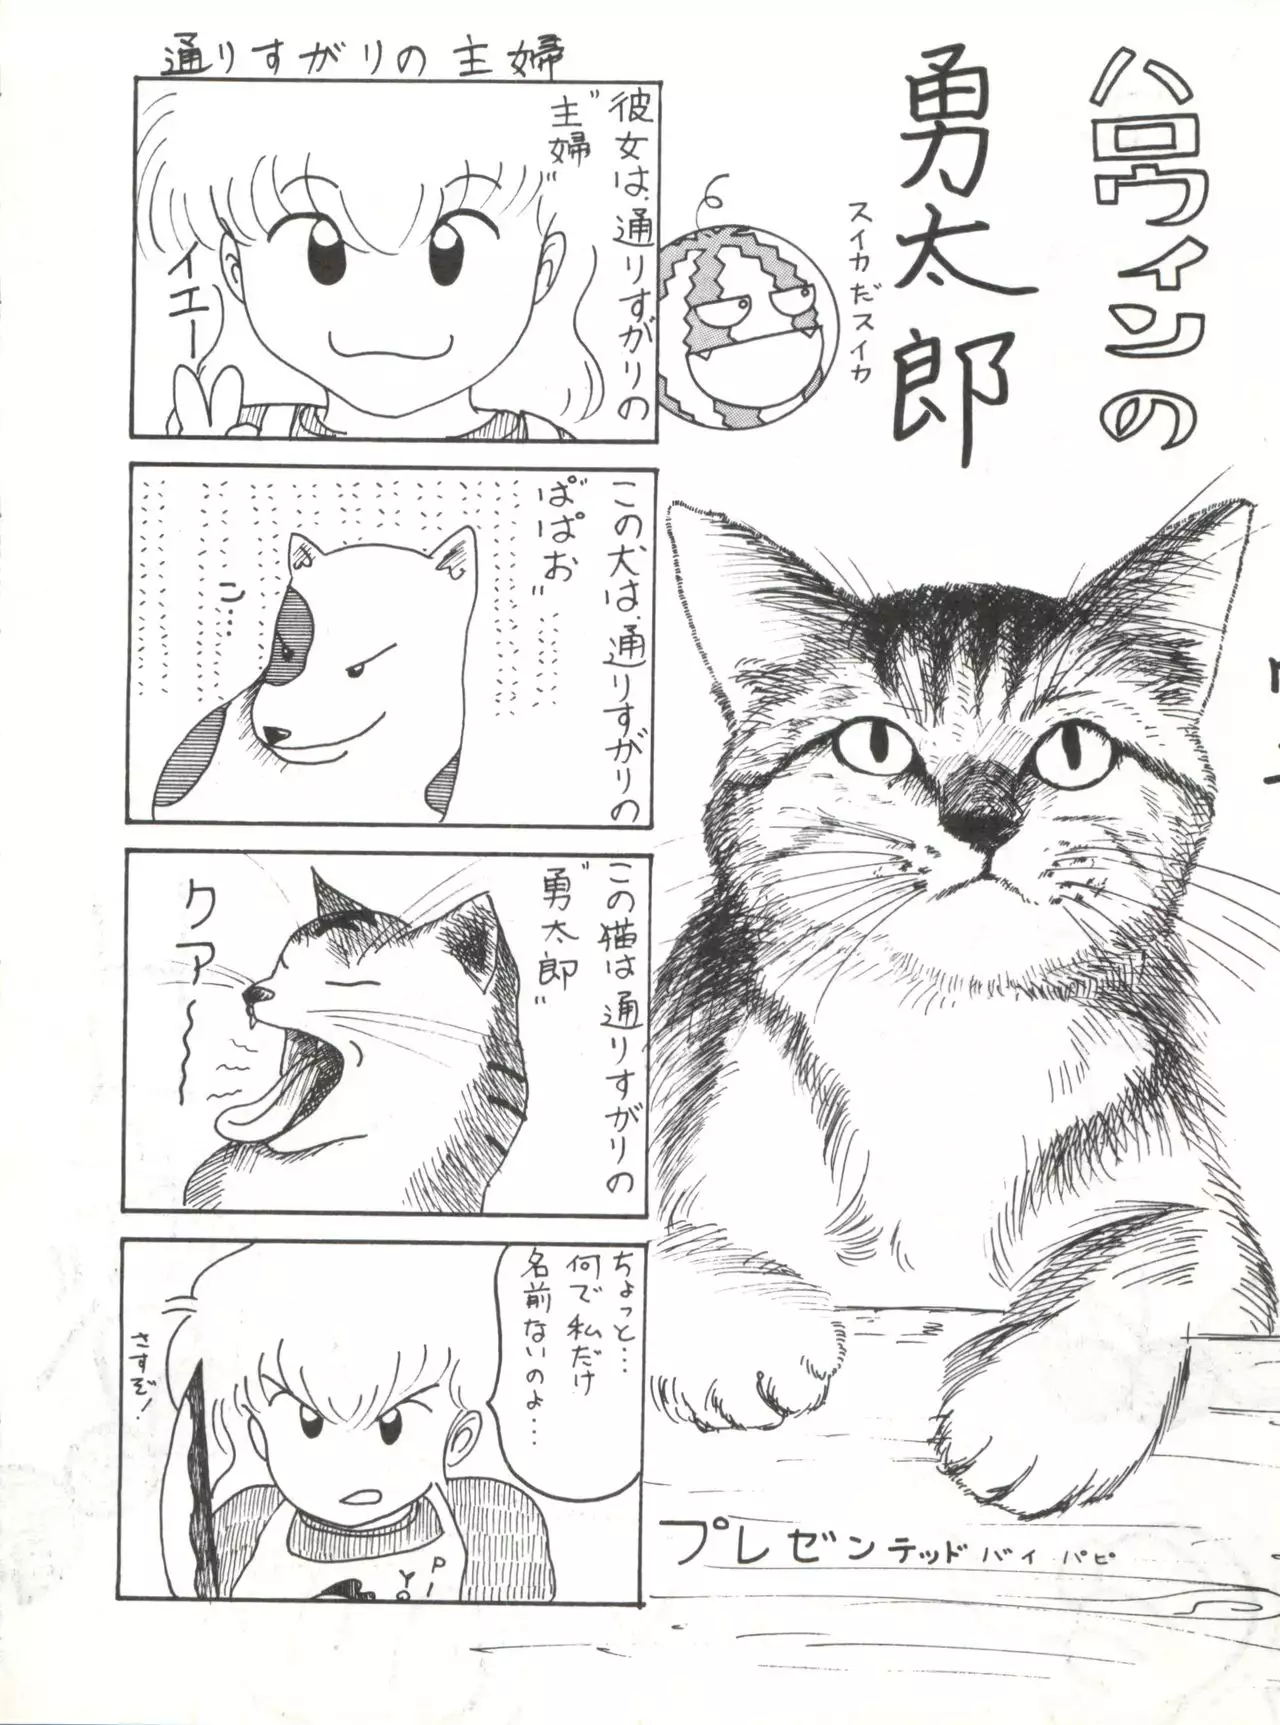 ハロウィンの
勇太郎
スイカだスイカ
プレゼンテッド バイ パピ
通りすがりの主婦
彼女は、通りすがりの
"主婦"
イエー
この犬は、通りすがりの
"ぱぱお"
この猫は通りすがりの
"勇太郎"
クァ〜〜
ちょっと…
何で私だけ
名前ないのよ…
さすぞ!
PI
YO